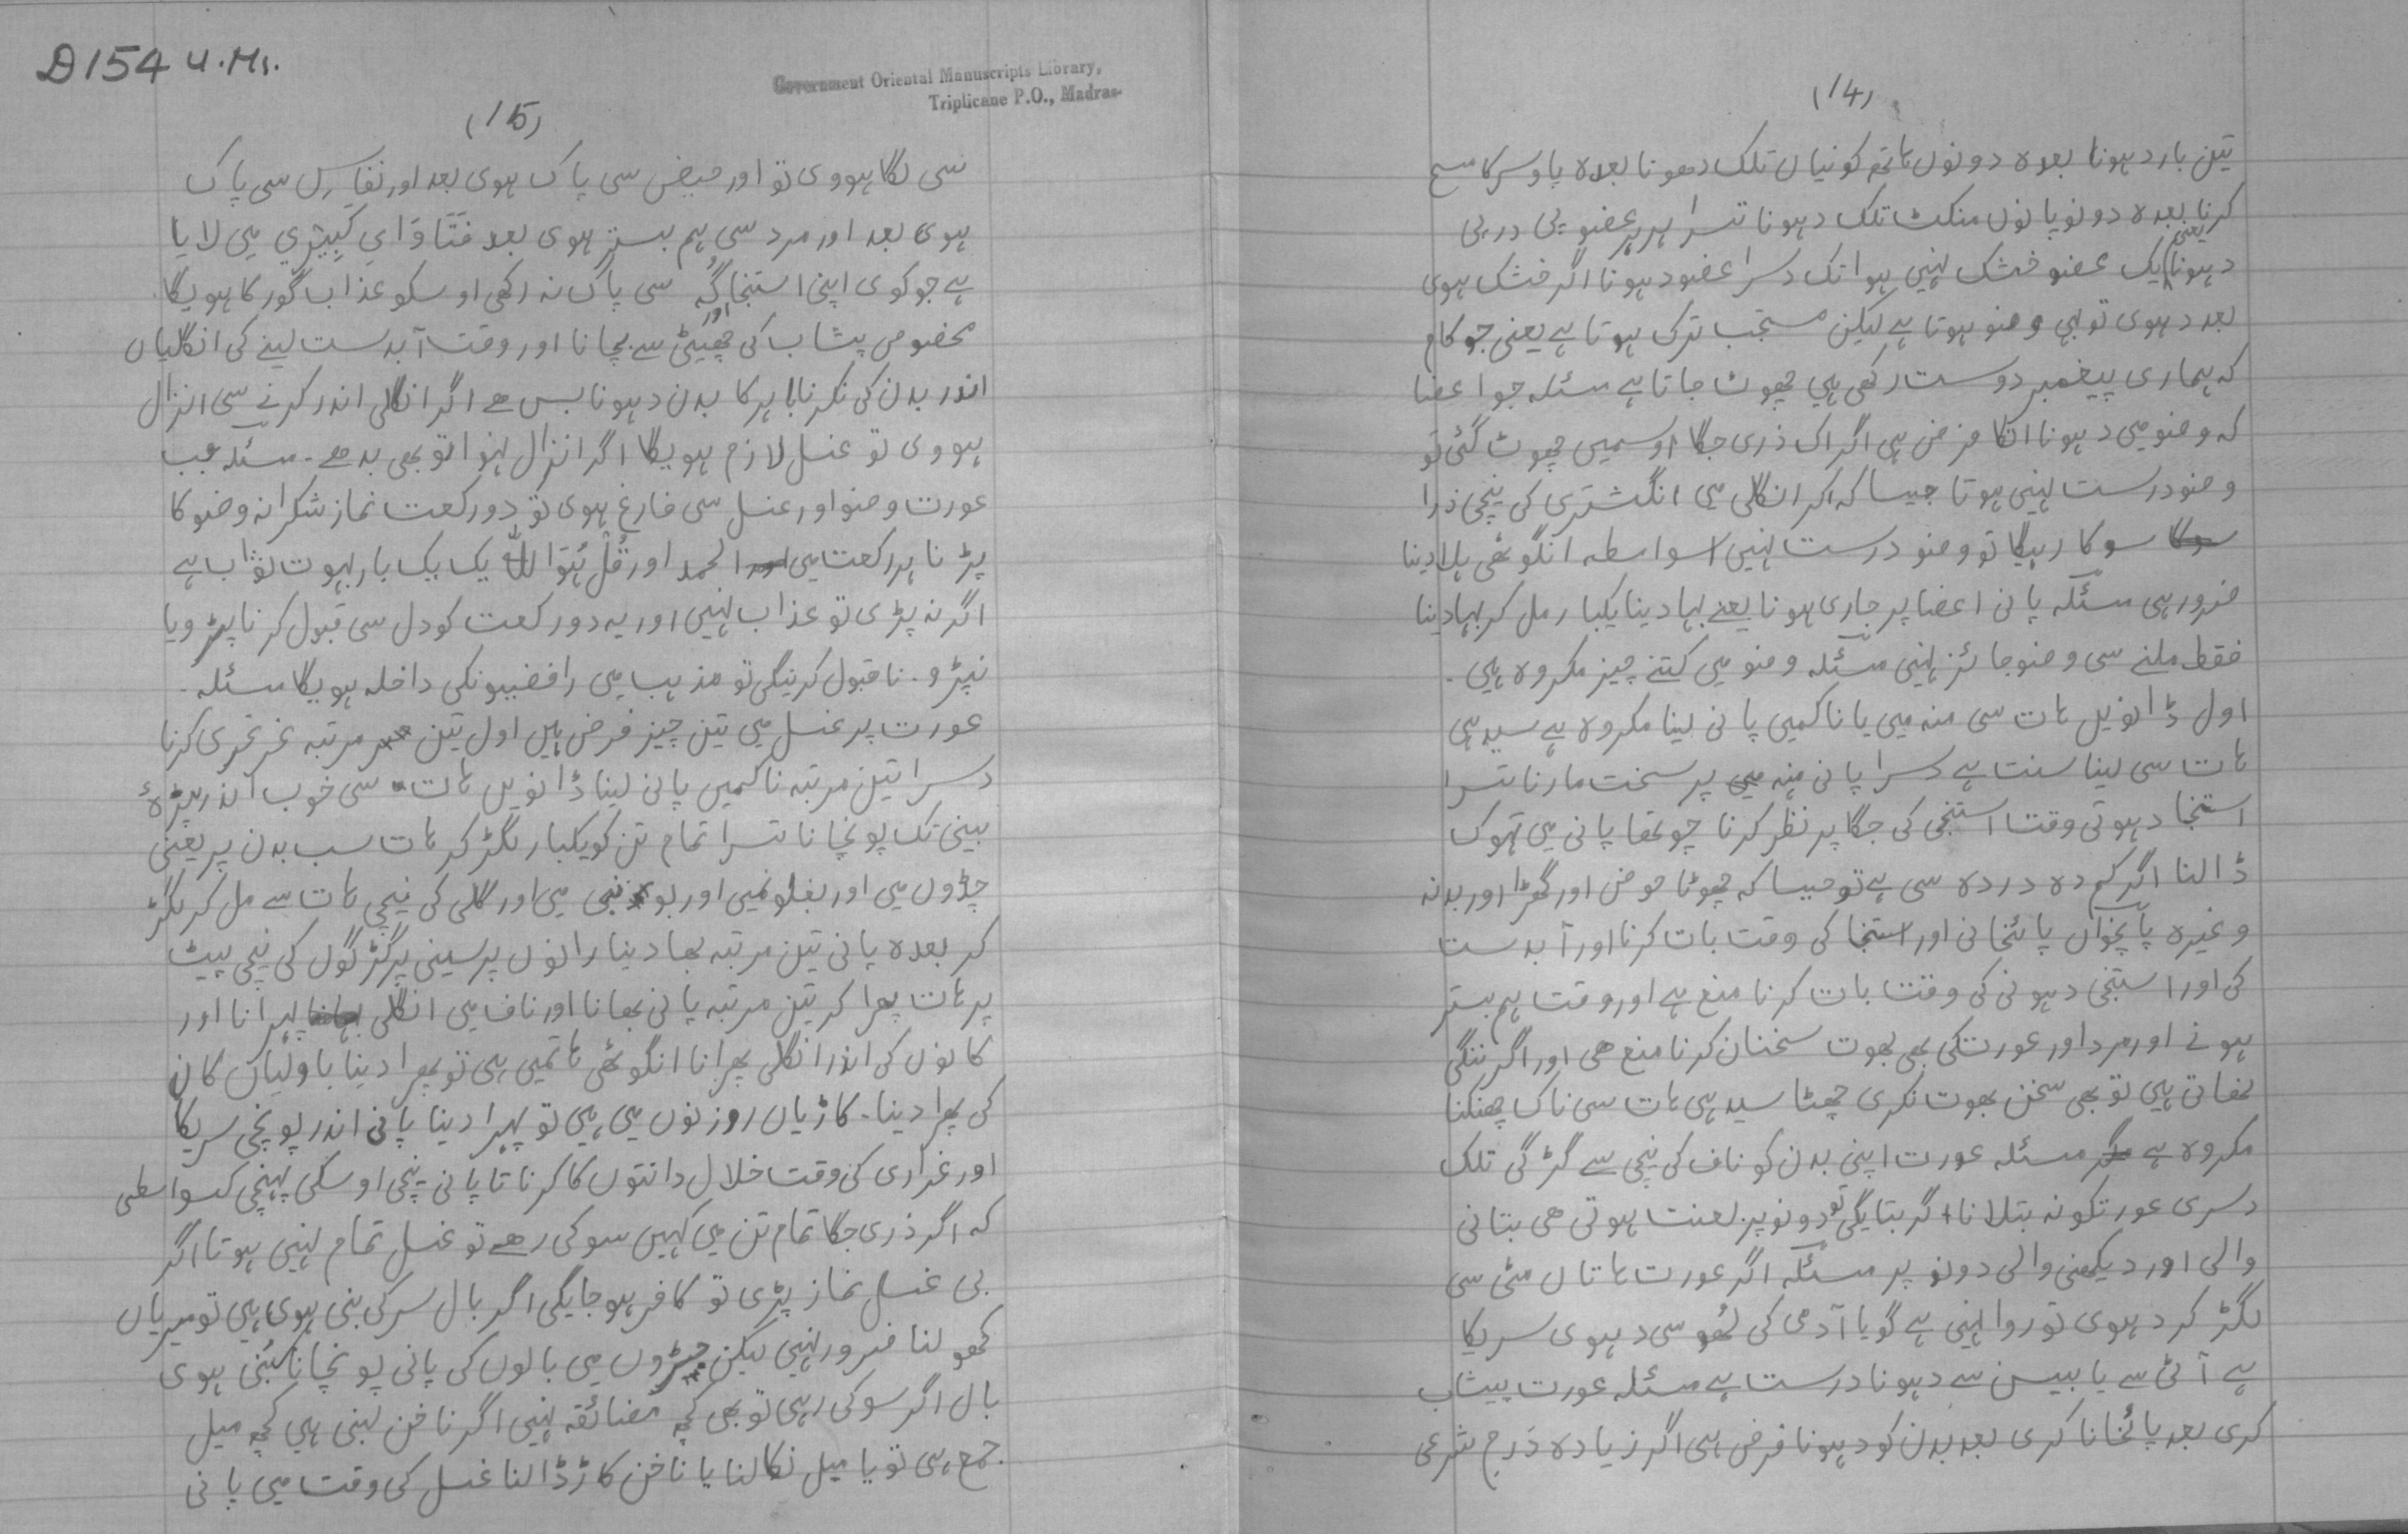 (14)
تین بار دہونا بعدہ دونوں ہاتھ کونیاں تلک دھونا بعدہ پاو سرکا مسح
کرنا بعدہ دونو پانوں منکٹ تلک دہونا تسرا ہر ہر عضو پی در پی
دہونا یعنی یک عضو خشک نہیں ہوا تک دسرا عضو دہونا اگر خشک ہوی
بعد دہوی تو بہی وضو ہوتا ہے لیکن مستحب ترک ہوتا ہے یعنی جو کام
کہ ہماری پیغمبر دوست رکھی ہیں چھوٹ جاتا ہے مسئلہ جو اعضا
کہ وضو میں دہونا انکا فرض ہی اگر اک ذری جگا اوسمیں چھوٹ گئی تو
وضو درست نہیں ہوتا جیسا کہ اکر انگلی میں انگشتری کی نیچی ذرا
سوکا رہیگا تو وضو درست نہیں اسواسطہ انگوٹھی ہلا دینا
ضرور ہی مسئلہ پانی اعضا پر جاری ہونا یعنے بہا دینا یکبار مل کر بہا دینا
فقط ملنے سی وضو جائز نہیں مسئلہ وضو میں کتنے چیز مکروہ ہیں ۔
اول ڈانویں ہات سی منہ میں یا ناکمیں پانی لینا مکروہ ہے سیدہی
ہات سی لینا سنت ہے دسرا پانی منہ پر سخت مارنا تسرا
استنجا دہوتی وقت استنجی کی جگا پر نظر کرنا چوتھا پانی میں تہوک
ڈالنا اگر کم دہ در دہ سی ہے تو جیسا کہ چھوٹا حوض اور گھڑا اور بدنہ
وغیرہ پانچواں پائخانی اور استنجا کی وقت بات کرنا اور آبدست
کی اور استنجی دہونی کی وقت بات کرنا منع ہے اور وقت ہم بستر
ہونے اور مرد اور عورتکی بھی بھوت سخنان کرنا منع ھی اور اگر ننگی
نھاتی ہیں تو بھی سخن بھوت نکری چھٹا سیدہی ہات سی ناک چھنکنا
مکروہ ہے مسئلہ عورت اپنی بدن کو ناف کی نیچی سے گڑگی تلک
دسری عورتکو نہ بتلانا اگر بتایگی تو دونو پر لعنت ہوتی ھی بتانی
والی اور دیکھنی والی دونو پر مسئلہ اگر عورت ہاتاں مٹی سی
لگڑ کر دہوی تو روا نہیں ہے گویا آدمی کی لھو سی دہوی سریکا
ہے آٹی سے یا بیسن سے دہونا درست ہے مسئلہ عورت پیشاب
کری بعد پائخانا کری بعد بدن کو دہونا فرض ہی اگر زیادہ درم شرعی
D 154 U.Ms.
Government Oriental Manuscripts Library,
Triplicane P.O., Madras
(15)
سی لگا ہووی تو اور حیض سی پاک ہوی بعد اور نفاس سی پاک
ہوی بعد اور مرد سی ہم بستر ہوی بعد فَتَاوَایِ کَبِیْرِي میں لایا
ہے جو کوی اپنی استنجا گُہ سی پاک نہ رکھی اوسکو عذاب گور کا ہویگا ۔
مخصوص پشاب کی چھیٹی سے بچانا اور وقت آبدست لینے کی انگلیاں
اندر بدن کی نکرنا باہر کا بدن دہونا بس ھے اگر انگلی اندر کرنے سی انزال
ہووی تو غسل لازم ہویگا اگر انزال نہوا تو بھی بد ھے ۔ مسئلہ جب
عورت وضو اور غسل سی فارغ ہوی تو دو رکعت نماز شکرانہ وضو کا
پڑنا ہر رکعت میں الحمد اور قُلْ ہُوَ اللّٰہ یک یک بار بہوت ثواب ہے
اگر نہ پڑی تو عذاب نہیں اور یہ دو رکعت کو دل سی قبول کرنا پڑو یا
نپڑو ۔ نا قبول کرینگی تو مذہب میں رافضیونکی داخلہ ہویگا مسئلہ ۔
عورت پر غسل میں تین چیز فرض ہیں اول تین مرتبہ غرغری کرنا
دسرا تین مرتبہ ناکمیں پانی لینا ڈانویں ہات سی خوب اندر
بینی تک پونچانا تسرا تمام تن کو یکبار لگڑ کر ہات سب بدن پر یعنی
چڈوں میں اور بغلونمیں اور میں اور گلی کی نیچی ہات سے مل کر لگڑ
کر بعدہ پانی تین مرتبہ بھا دینا رانوں پر سینی پر گڑگوں کی نیچی پیٹ
پر ہات پھرا کر تین مرتبہ پانی بھانا اور ناف میں انگلی پہرانا اور
کانوں کی اندر انگلی پھرانا انگوٹھی ہاتمیں ہی تو پھرا دینا باولیاں کان
کی پھرا دینا ۔ کاڑیاں روزنوں میں ہیں تو پہرا دینا پانی اندر پونچی سریکا
اور غراری کی وقت خلال دانتوں کا کرنا تا پانی نیچی اوسکی پہنچی کسواسطی
کہ اگر ذری جگا تمام تن میں کہیں سوکی رھے تو غسل تمام نہیں ہوتا اگر
بی غسل نماز پڑی تو کافر ہو جایگی اگر بال سر کی بنی ہوی ہیں تو میریاں
کھولنا ضرور نہیں لیکن جڑوں میں بالوں کی پانی پونچانا بُنی ہوی
بال اگر سوکی رہی تو بھی کچھ مضائقہ نہیں اگر ناخن لبنی ہیں کچھ میل
جمع ہی تو یا میل نکالنا یا ناخن کاڑ ڈالنا غسل کی وقت میں پانی